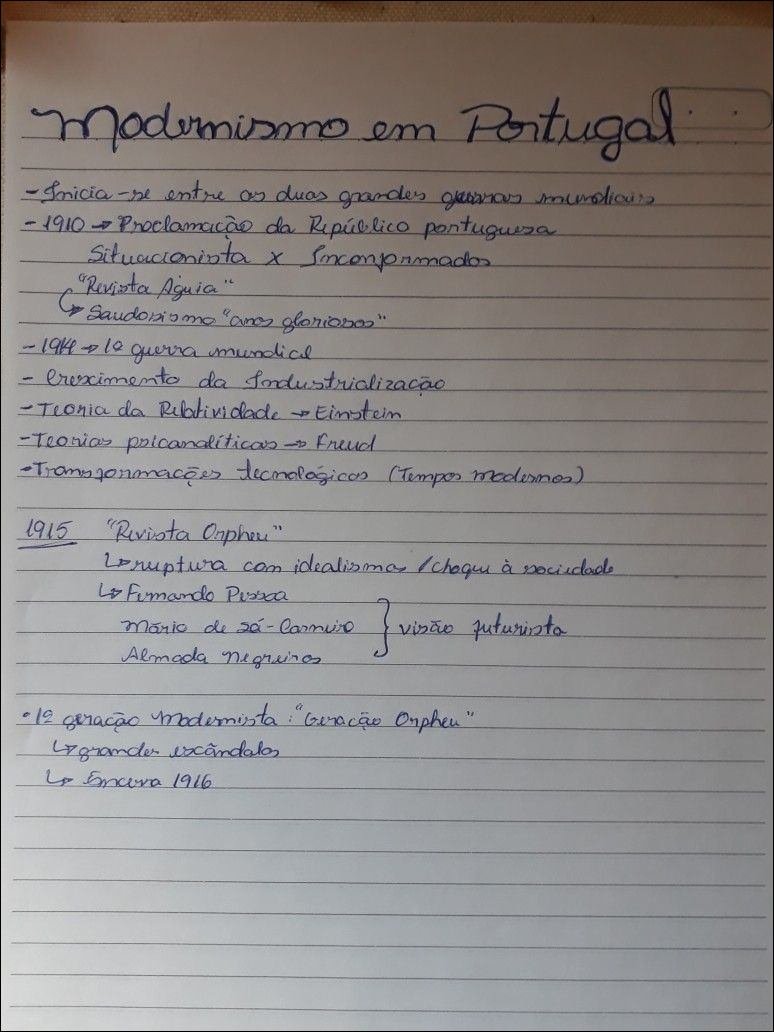 Modernismo em Portugal
- Inicia-se entre as duas grandes guerras mundiais
- 1910 → Proclamação da República portuguesa
Situacionista x Inconformados
"Revista Águia"
↳ Saudosismo "anos gloriosos"
- 1914 → 1º guerra mundial
- Crescimento da Industrialização
- Teoria da Relatividade → Einstein
- Teorias psicanalíticas → Freud
- Transformações tecnológicas (Tempos modernos)
1915 "Revista Orpheu"
↳ ruptura com idealismos / choque à sociedade
↳ Fernando Pessoa
Mário de Sá-Carneiro } visão futurista
Almada Negreiros
• 1º geração Modernista: "Geração Orpheu"
↳ grandes escândalos
↳ Encerra 1916